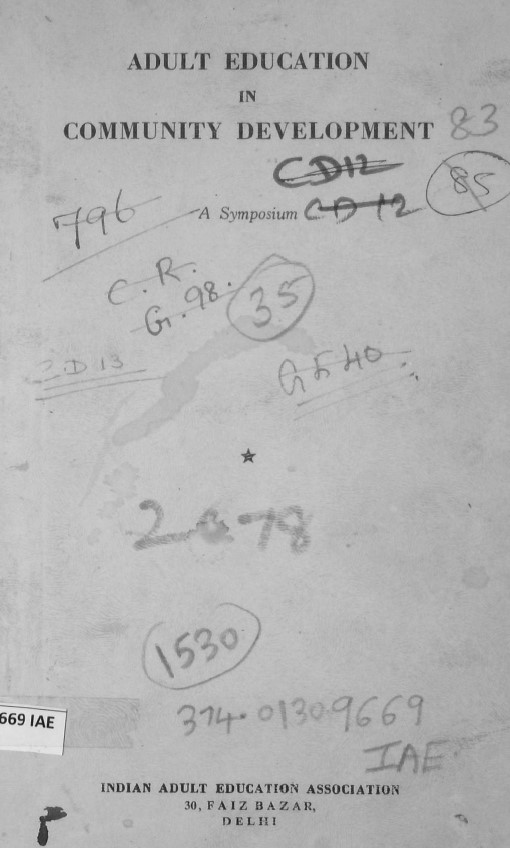 ADULT EDUCATION
IN
COMMUNITY DEVELOPMENT 83
CD12
85
796
A Symposium CD 12
C.R.
G.98.
35
C.D 13
G.F 40
1530
374.01309669
IAE
669 IAE
INDIAN ADULT EDUCATION ASSOCIATION
30, FAIZ BAZAR,
DELHI